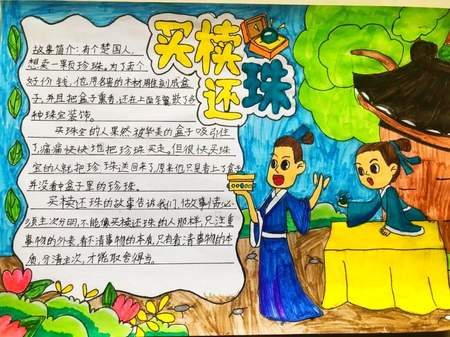 买椟还珠
故事简介：有个楚国人，
想卖一颗珍珠。为了卖个
好价钱，他用名贵的木材雕刻成盒
子，并且把盒子熏香，还在上面
种珠宝装饰。
买珠宝的人果然被华美的盒子吸引住
了，痛痛快快地把珍珠买走，但很快买珠
宝的人就把珍珠送回来了，原来他只是看上了盒子
并没看中盒子里的珍珠。
买椟还珠的故事告诉我们，做事情必
须主次分明，不能像买椟还珠的人那样，只注重
事物的外表，看不清事物的本质，只有看清事物的本
质，分清主次，才能取舍得当。